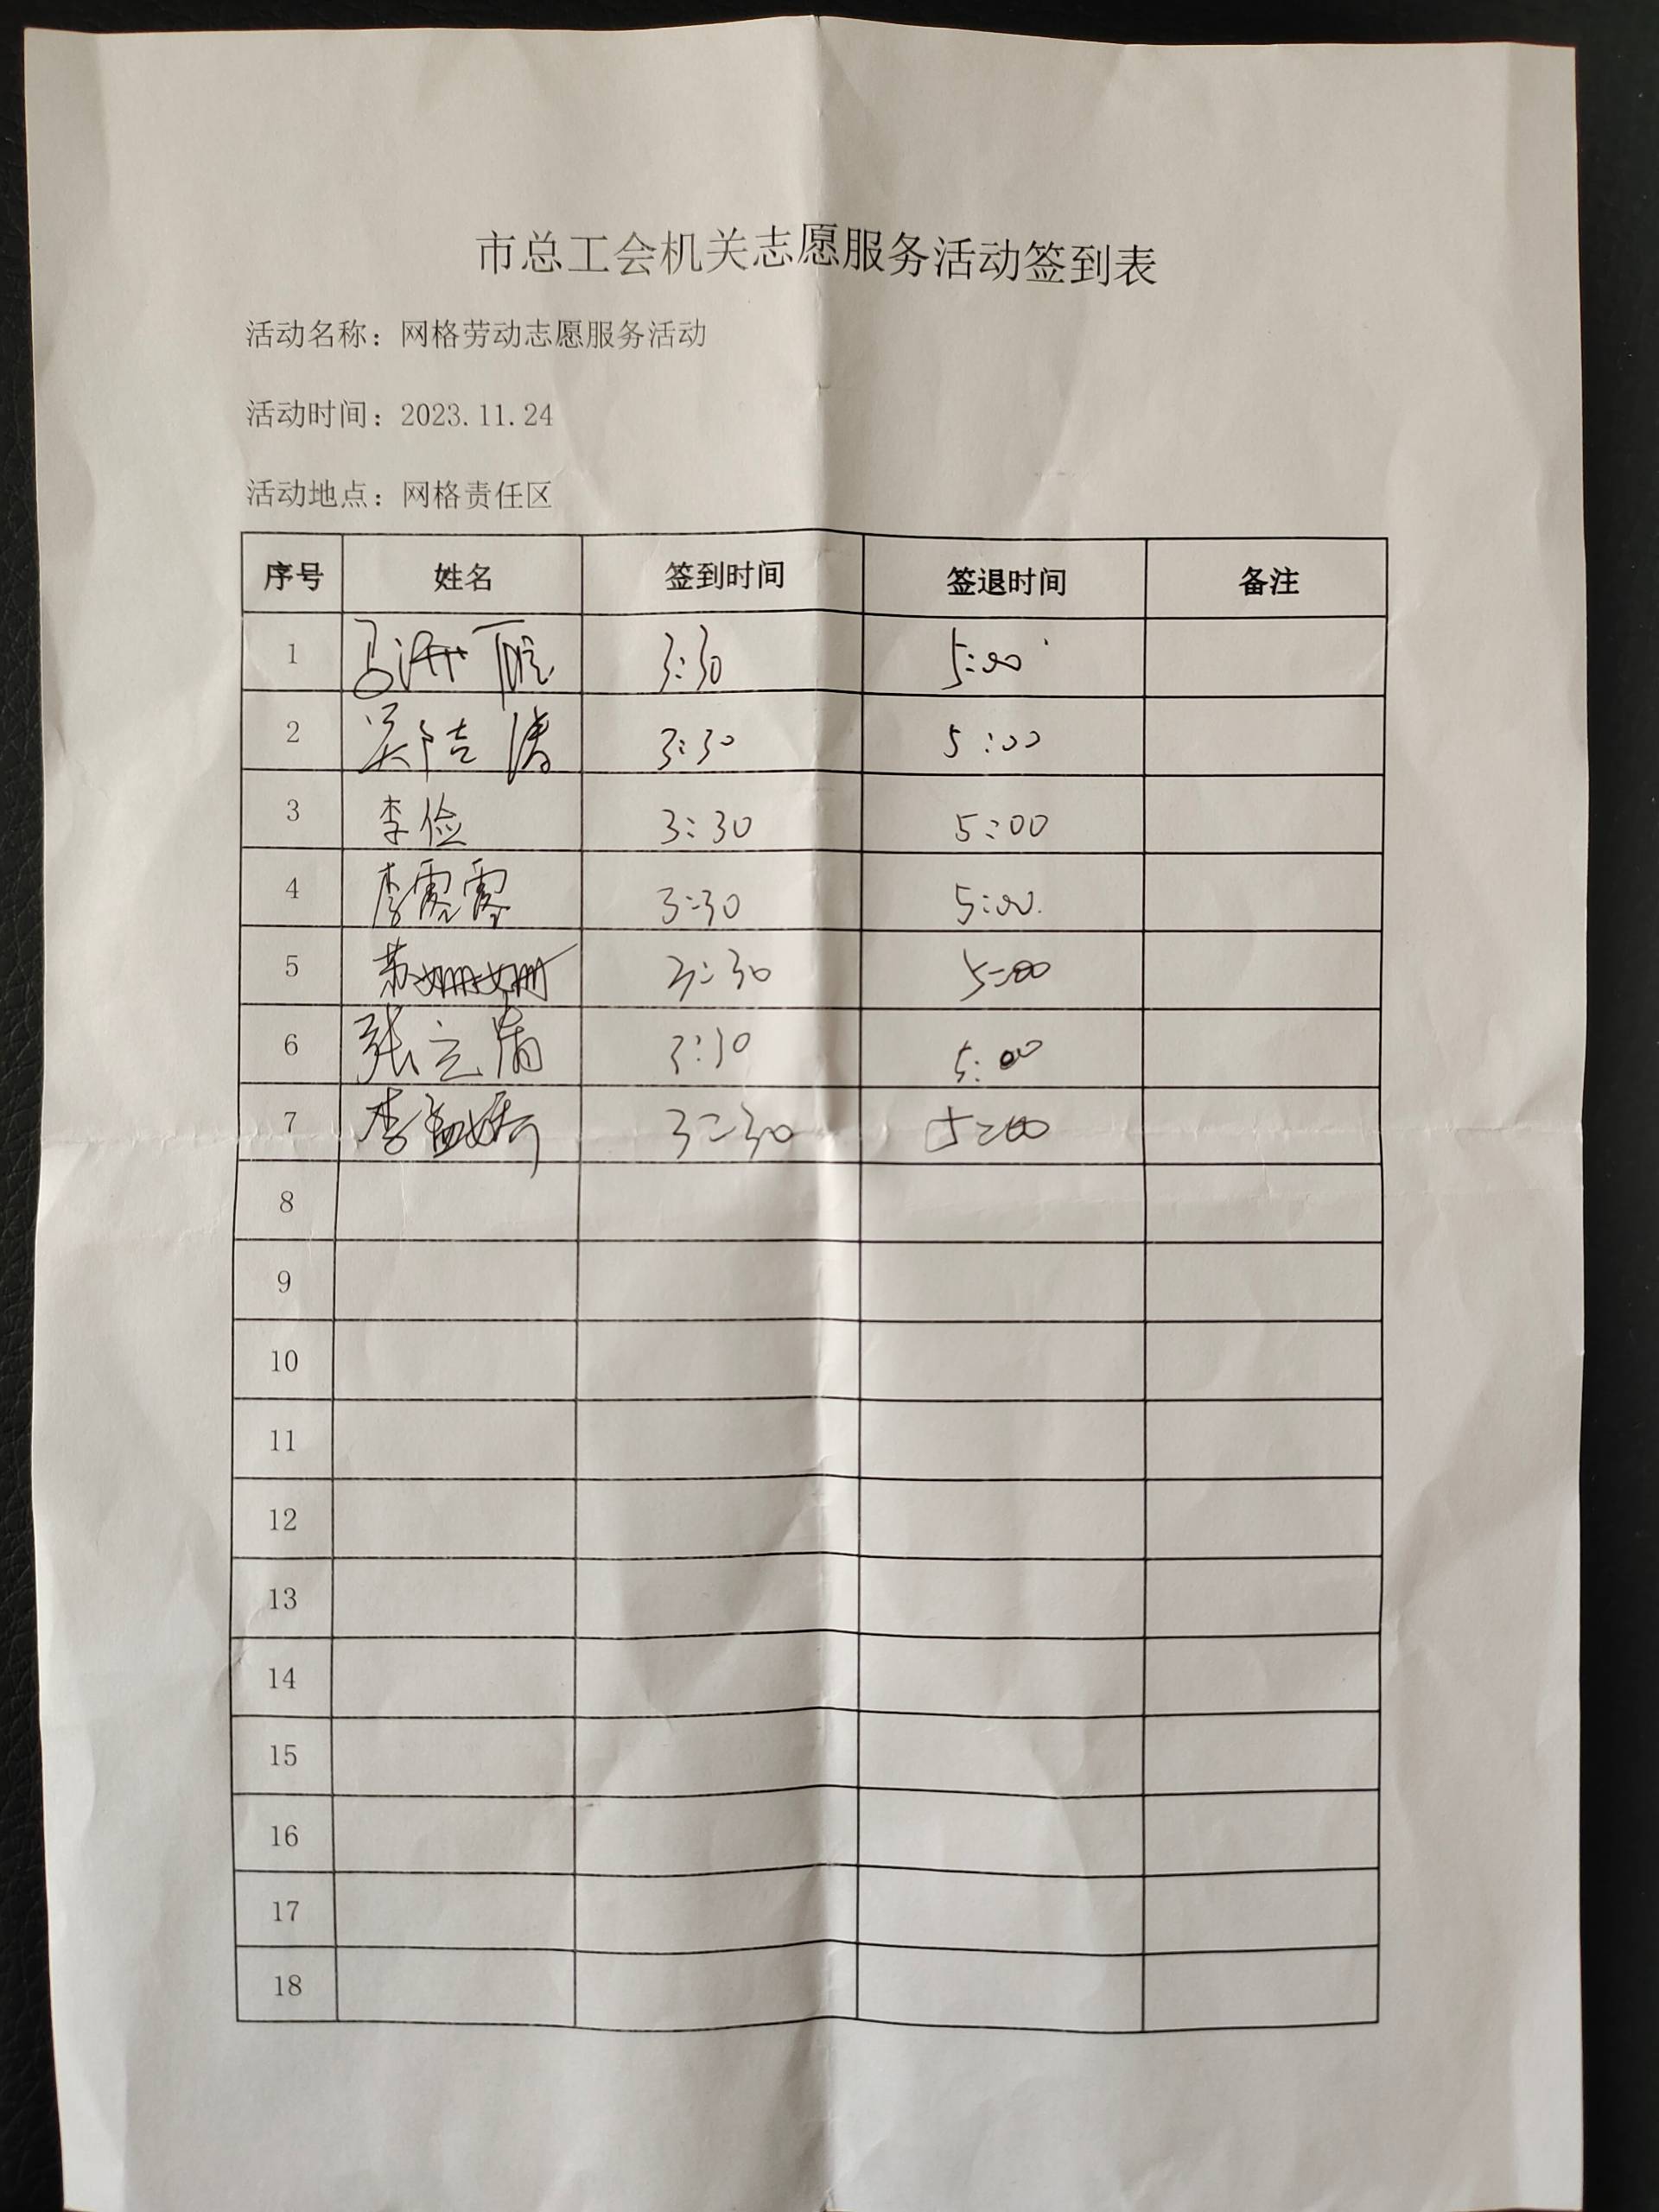 市总工会机关志愿服务活动签到表
活动名称：网格劳动志愿服务活动
活动时间：2023.11.24
活动地点：网格责任区
序号 姓名 签到时间 签退时间 备注
1 3:30 5:00
2 3:30 5:00
3 李俭 3:30 5:00
4 李霞霞 3:30 5:00
5 苏姗姗 3:30 5:00
6 张立 3:30 5:00
7 李 3:30 5:00
8
9
10
11
12
13
14
15
16
17
18